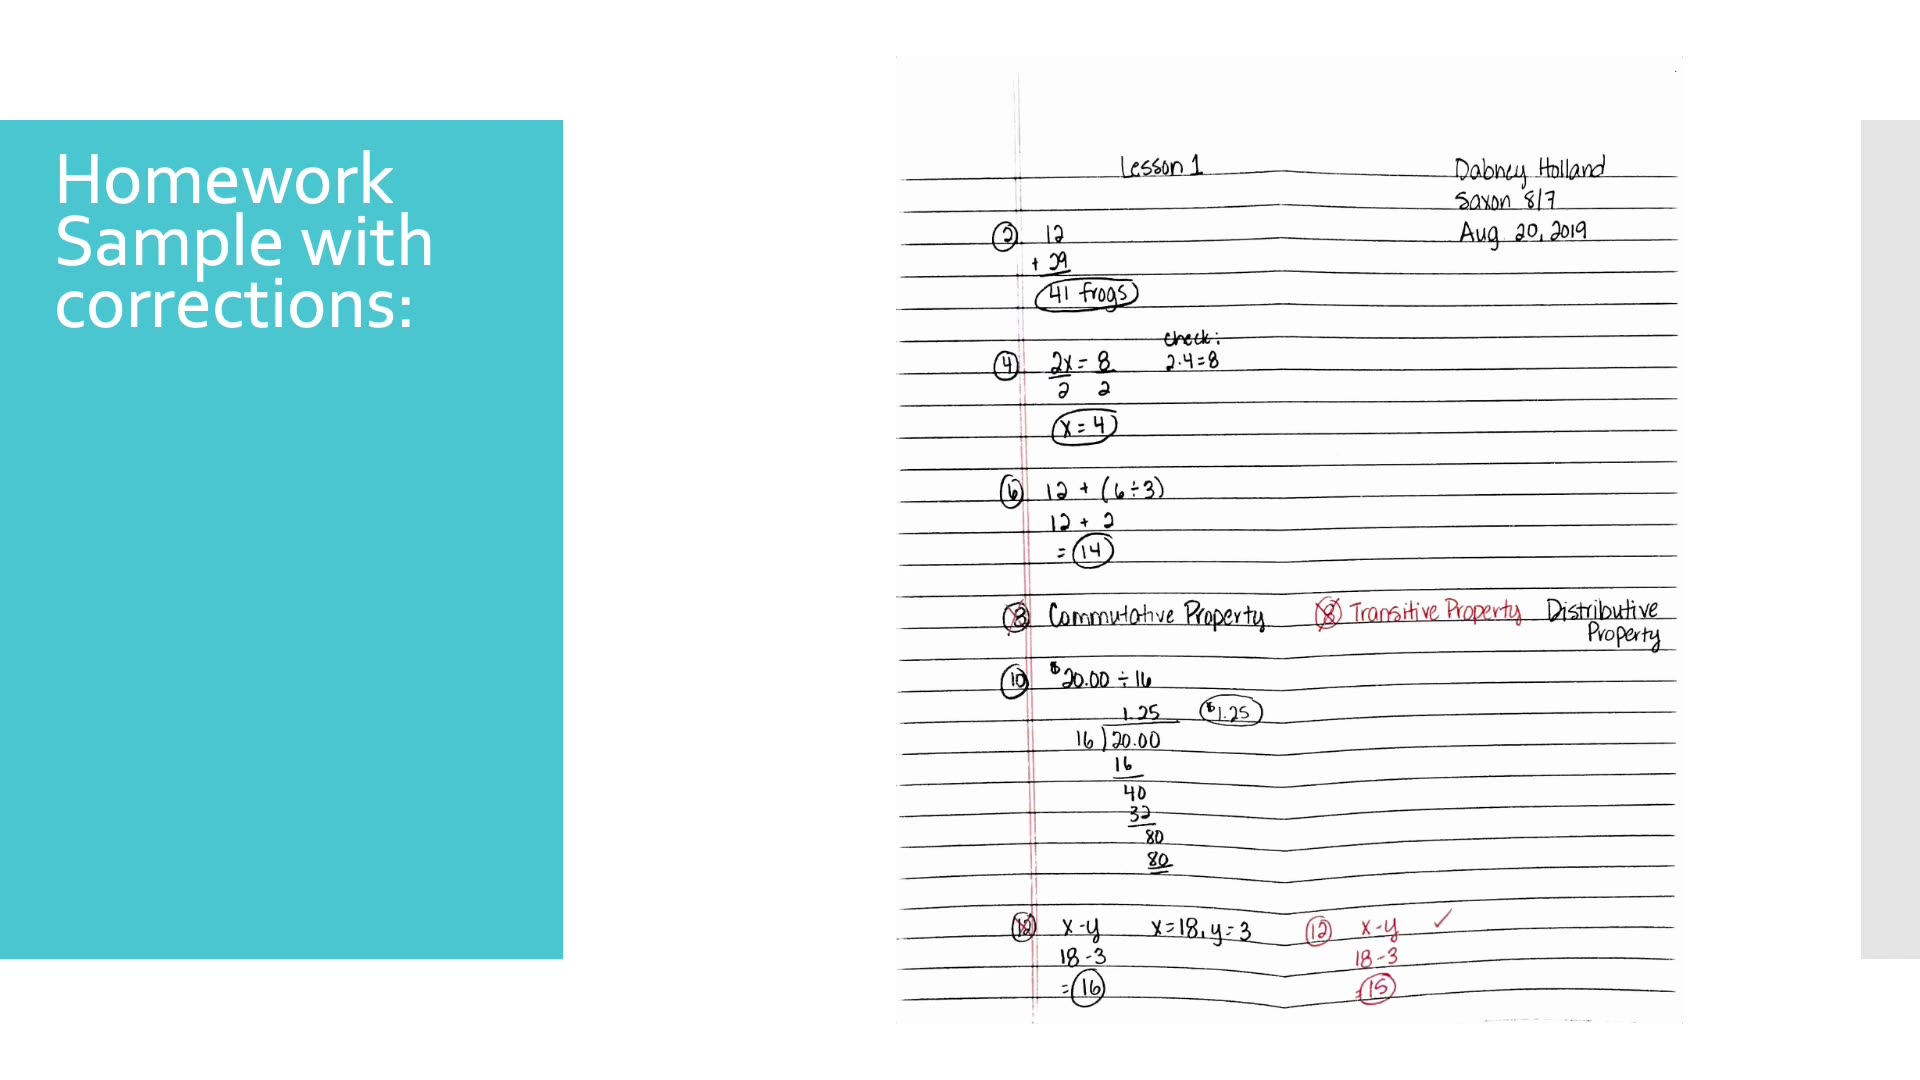 Homework
Sample with
corrections:
Lesson 1
Dabney Holland
Saxon 8/7
Aug 20, 2019
2 12
+ 29
41 frogs
4 2x = 8
2 2
x = 4
check:
2·4=8
6 12 + (6÷3)
12 + 2
= 14
8 Commutative Property
8 Transitive Property
Distributive
Property
10 $20.00 ÷ 16
1.25 $1.25
16 20.00
16
40
32
80
80
12 x-y x=18, y=3
18-3
= 16
12 x-y ✓
18-3
= 15